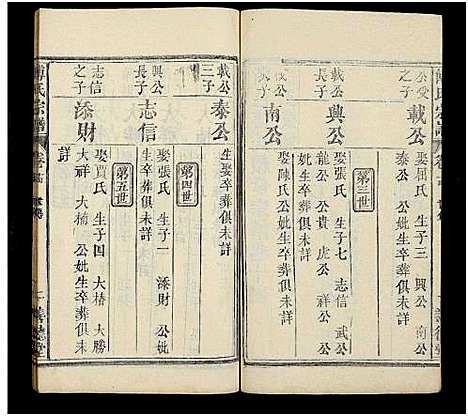 傅氏宗譜
公受之子
載公
娶屈氏 生子三 興公 南公
泰公 公妣生卒葬俱未詳
第三世
載公長子
興公
娶張氏 生子七 志信 武公
龍公 公貴 虎公 祥公 公
妣生卒葬俱未詳
南公
娶陳氏 公妣生卒葬俱未詳
載公三子
泰公
生娶卒葬俱未詳
第四世
興公長子
志信
娶張氏 生子一 添財 公妣
生卒葬俱未詳
第五世
志信之子
添財
娶賈氏 生子四 大椿 大勝
大祥 大楠 公妣生卒葬俱未
詳
氏宗譜